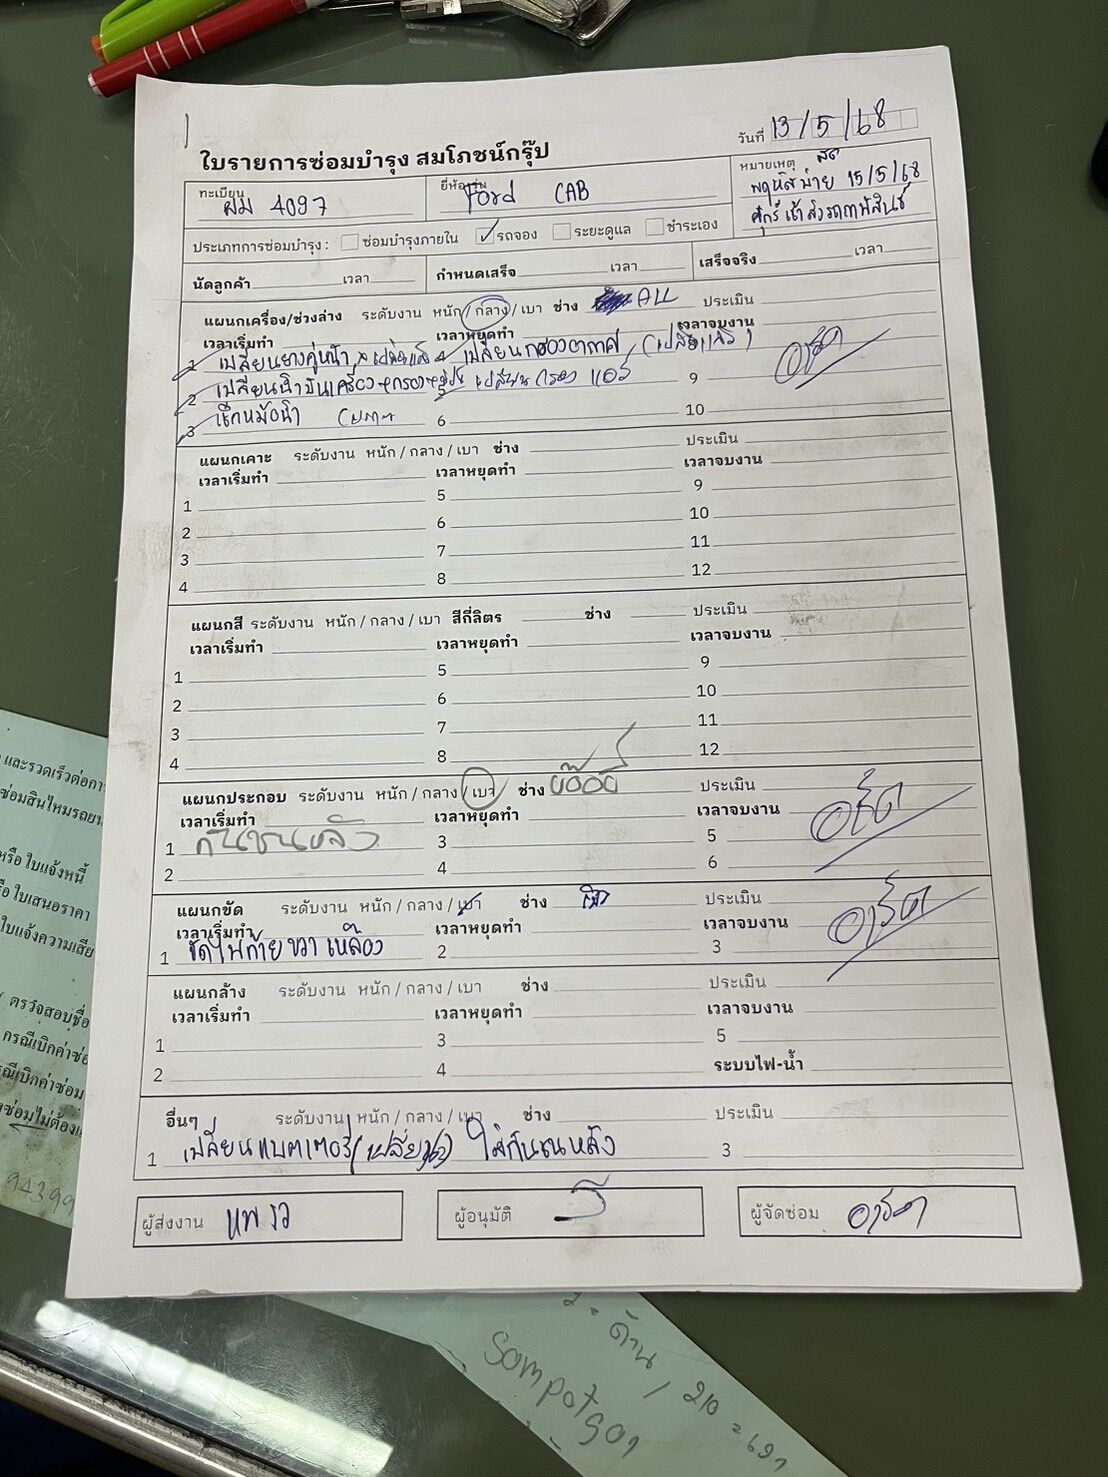 วันที่ 13/5/68
ใบรายการซ่อมบำรุง สมโภชน์กรุ๊ป
ทะเบียน ผม 4097 ยี่ห้อ/รุ่น Ford CAB หมายเหตุ
พฤหัสบ่าย 15/5/68
ศุกร์เช้าส่งรถกาฬสินธุ์
ประเภทการซ่อมบำรุง : ซ่อมบำรุงภายใน ✓ รถจอง ระยะดูแล ชำระเอง
นัดลูกค้า เวลา กำหนดเสร็จ เวลา เสร็จจริง เวลา
แผนกเครื่อง/ช่วงล่าง ระดับงาน หนัก / กลาง / เบา ช่าง ประเมิน
เวลาเริ่มทำ เวลาหยุดทำ เวลาจบงาน
1 เปลี่ยนยางคู่หน้า 4 เปลี่ยนกรองอากาศ (เปลี่ยนแล้ว)
2 เปลี่ยนน้ำมันเครื่อง+กรอง 5 เปลี่ยนกรองแอร์ 9
3 เช็กหม้อน้ำ 6 10
แผนกเคาะ ระดับงาน หนัก / กลาง / เบา ช่าง ประเมิน
เวลาเริ่มทำ เวลาหยุดทำ เวลาจบงาน
1 5 9
2 6 10
3 7 11
4 8 12
แผนกสี ระดับงาน หนัก / กลาง / เบา สีกี่ลิตร ช่าง ประเมิน
เวลาเริ่มทำ เวลาหยุดทำ เวลาจบงาน
1 5 9
2 6 10
3 7 11
4 8 12
แผนกประกอบ ระดับงาน หนัก / กลาง / เบา ช่าง ประเมิน
เวลาเริ่มทำ เวลาหยุดทำ เวลาจบงาน
1 กันชนหลัง 3 5
2 4 6
แผนกขัด ระดับงาน หนัก / กลาง / เบา ช่าง ประเมิน
เวลาเริ่มทำ เวลาหยุดทำ เวลาจบงาน
1 ขัดไฟท้าย ขวา เหลือง 2 3
แผนกล้าง ระดับงาน หนัก / กลาง / เบา ช่าง ประเมิน
เวลาเริ่มทำ เวลาหยุดทำ เวลาจบงาน
1 3 5
2 4 ระบบไฟ-น้ำ
อื่นๆ ระดับงาน หนัก / กลาง / เบา ช่าง ประเมิน
1 เปลี่ยนแบตเตอรี่ ใส่กันชนหลัง 3
ผู้ส่งงาน ผู้อนุมัติ ผู้จัดซ่อม
และรวดเร็วต่อกา
ซ่อมสินไหมรถยน
หรือ ใบแจ้งหนี้
ใบเสนอราคา
ใบแจ้งความเสีย
ตรวจสอบชื่อ
กรณีเบิกค่าซ่อ
ณีเบิกค่าซ่อม
งซ่อมไม่ต้อง
94399